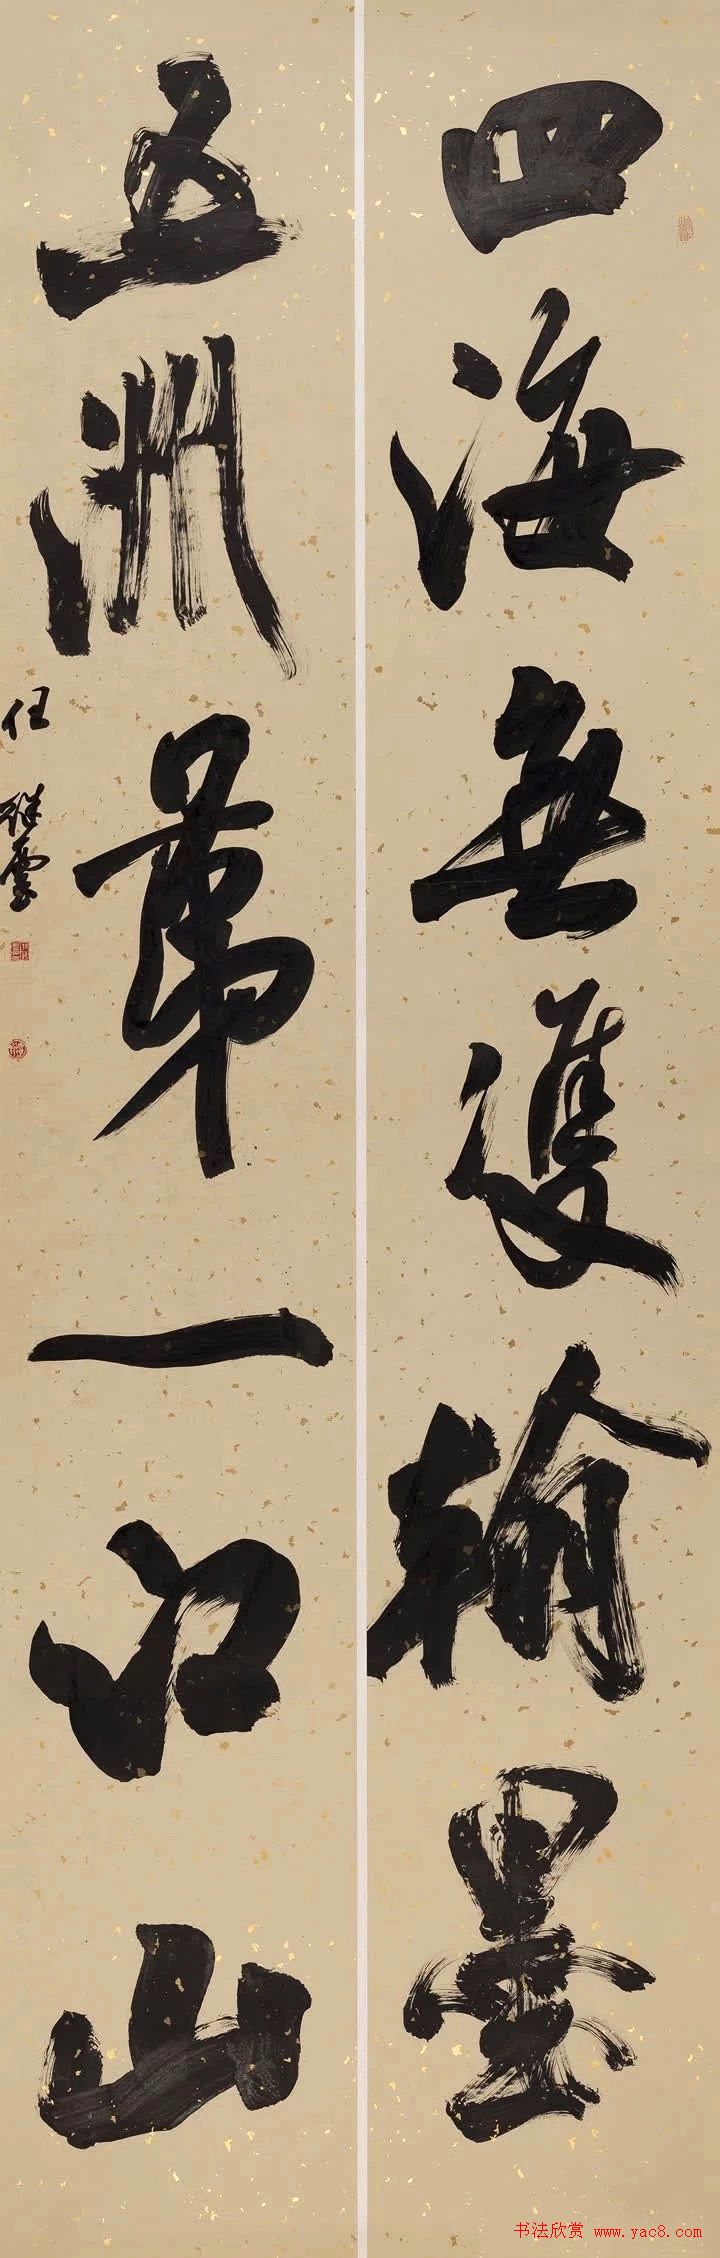 四海無雙翰墨
五洲第一江山
任
書法欣赏 www.yac8.com